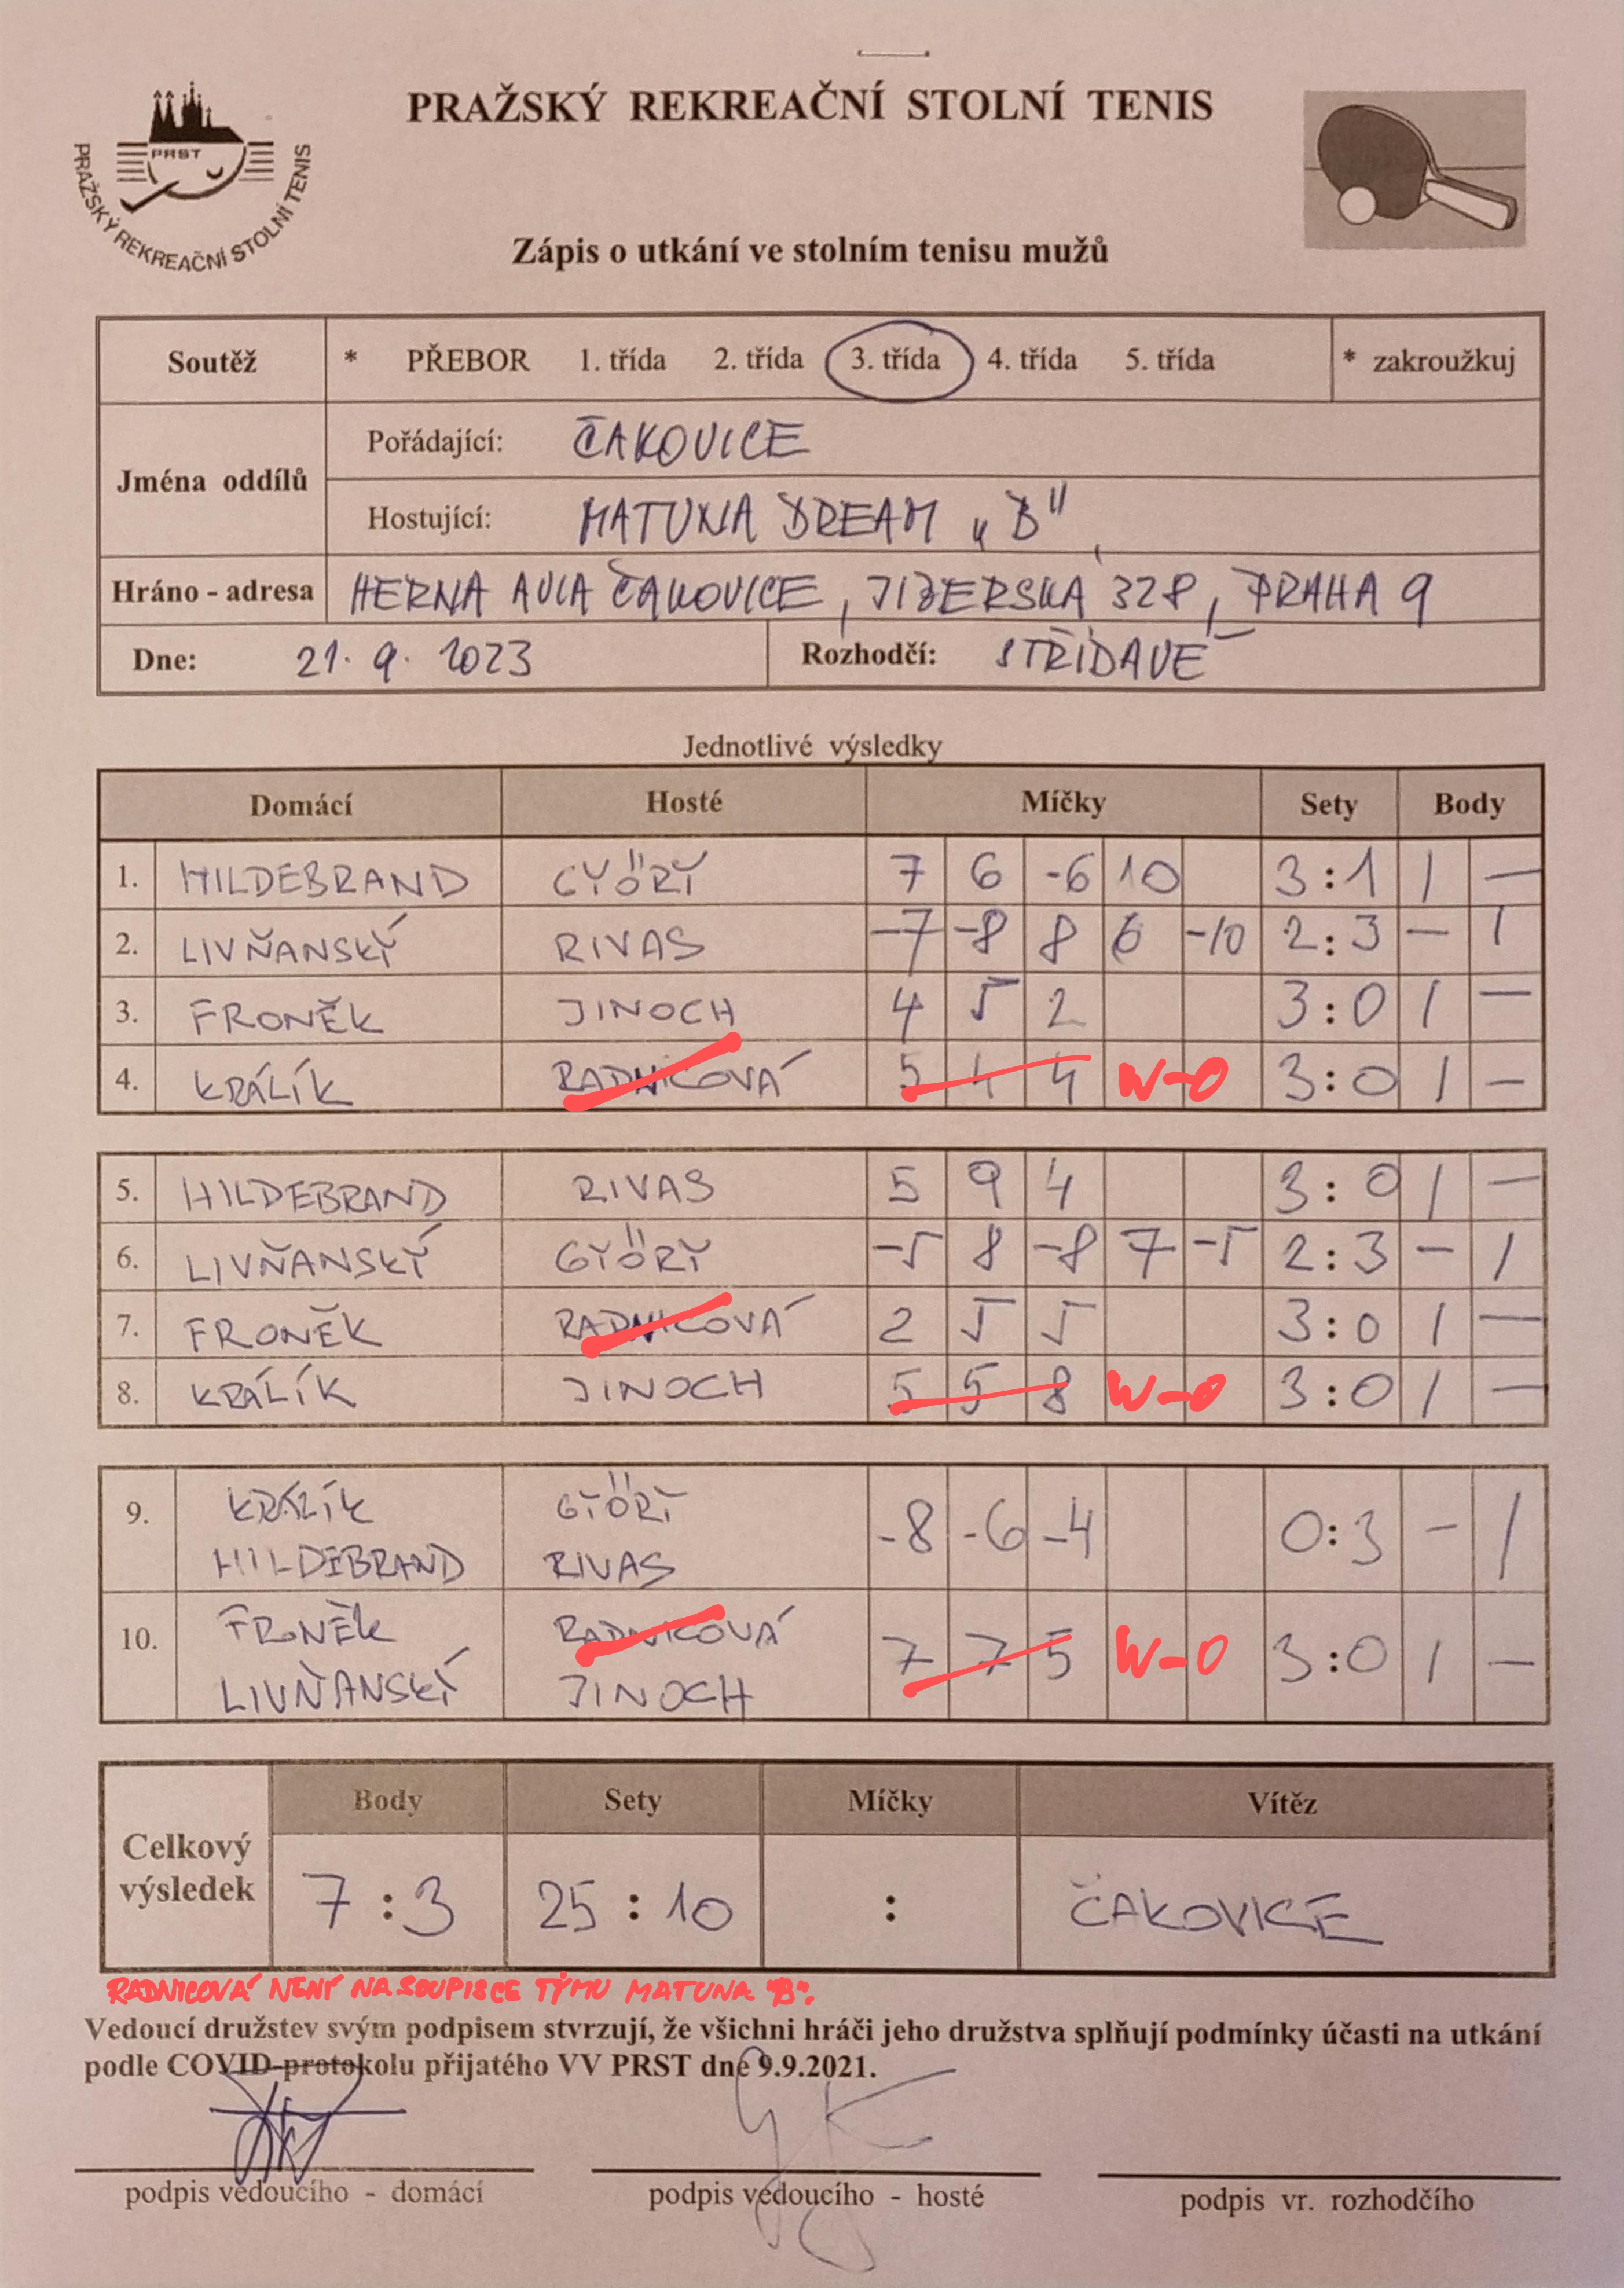 PRAŽSKÝ REKREAČNÍ STOLNÍ TENIS
PRST
PRAŽSKÝ REKREAČNÍ STOLNÍ TENIS
Zápis o utkání ve stolním tenisu mužů
Soutěž * PŘEBOR 1. třída 2. třída 3. třída 4. třída 5. třída * zakroužkuj
Jména oddílů
Pořádající: ČAKOVICE
Hostující: MATUNA DREAM „B"
Hráno - adresa HERNA AVIA ČAKOVICE, JIZERSKÁ 328, PRAHA 9
Dne: 21. 9. 2023 Rozhodčí: STŘÍDAVĚ
Jednotlivé výsledky
Domácí Hosté Míčky Sety Body
1. HILDEBRAND GYÖRY 7 6 -6 10 3:1 1 —
2. LIVŇANSKÝ RIVAS -7 -8 8 6 -10 2:3 — 1
3. FRONĚK JINOCH 4 5 2 3:0 1 —
4. KRÁLÍK RADNICOVÁ 5 4 4 W-0 3:0 1 —
5. HILDEBRAND RIVAS 5 9 4 3:0 1 —
6. LIVŇANSKÝ GYÖRY -5 8 -8 7 -5 2:3 — 1
7. FRONĚK RADNICOVÁ 2 5 5 3:0 1 —
8. KRÁLÍK JINOCH 5 5 8 W-0 3:0 1 —
9. KRÁLÍK GYÖRY -8 -6 -4 0:3 — 1
HILDEBRAND RIVAS
10. FRONĚK RADNICOVÁ 7 7 5 W-0 3:0 1 —
LIVŇANSKÝ JINOCH
Celkový výsledek
Body Sety Míčky Vítěz
7:3 25:10 : ČAKOVICE
RADNICOVÁ NENÍ NA SOUPISCE TÝMU MATUNA "B".
Vedoucí družstev svým podpisem stvrzují, že všichni hráči jeho družstva splňují podmínky účasti na utkání
podle COVID-protokolu přijatého VV PRST dne 9.9.2021.
podpis vedoucího - domácí podpis vedoucího - hosté podpis vr. rozhodčího